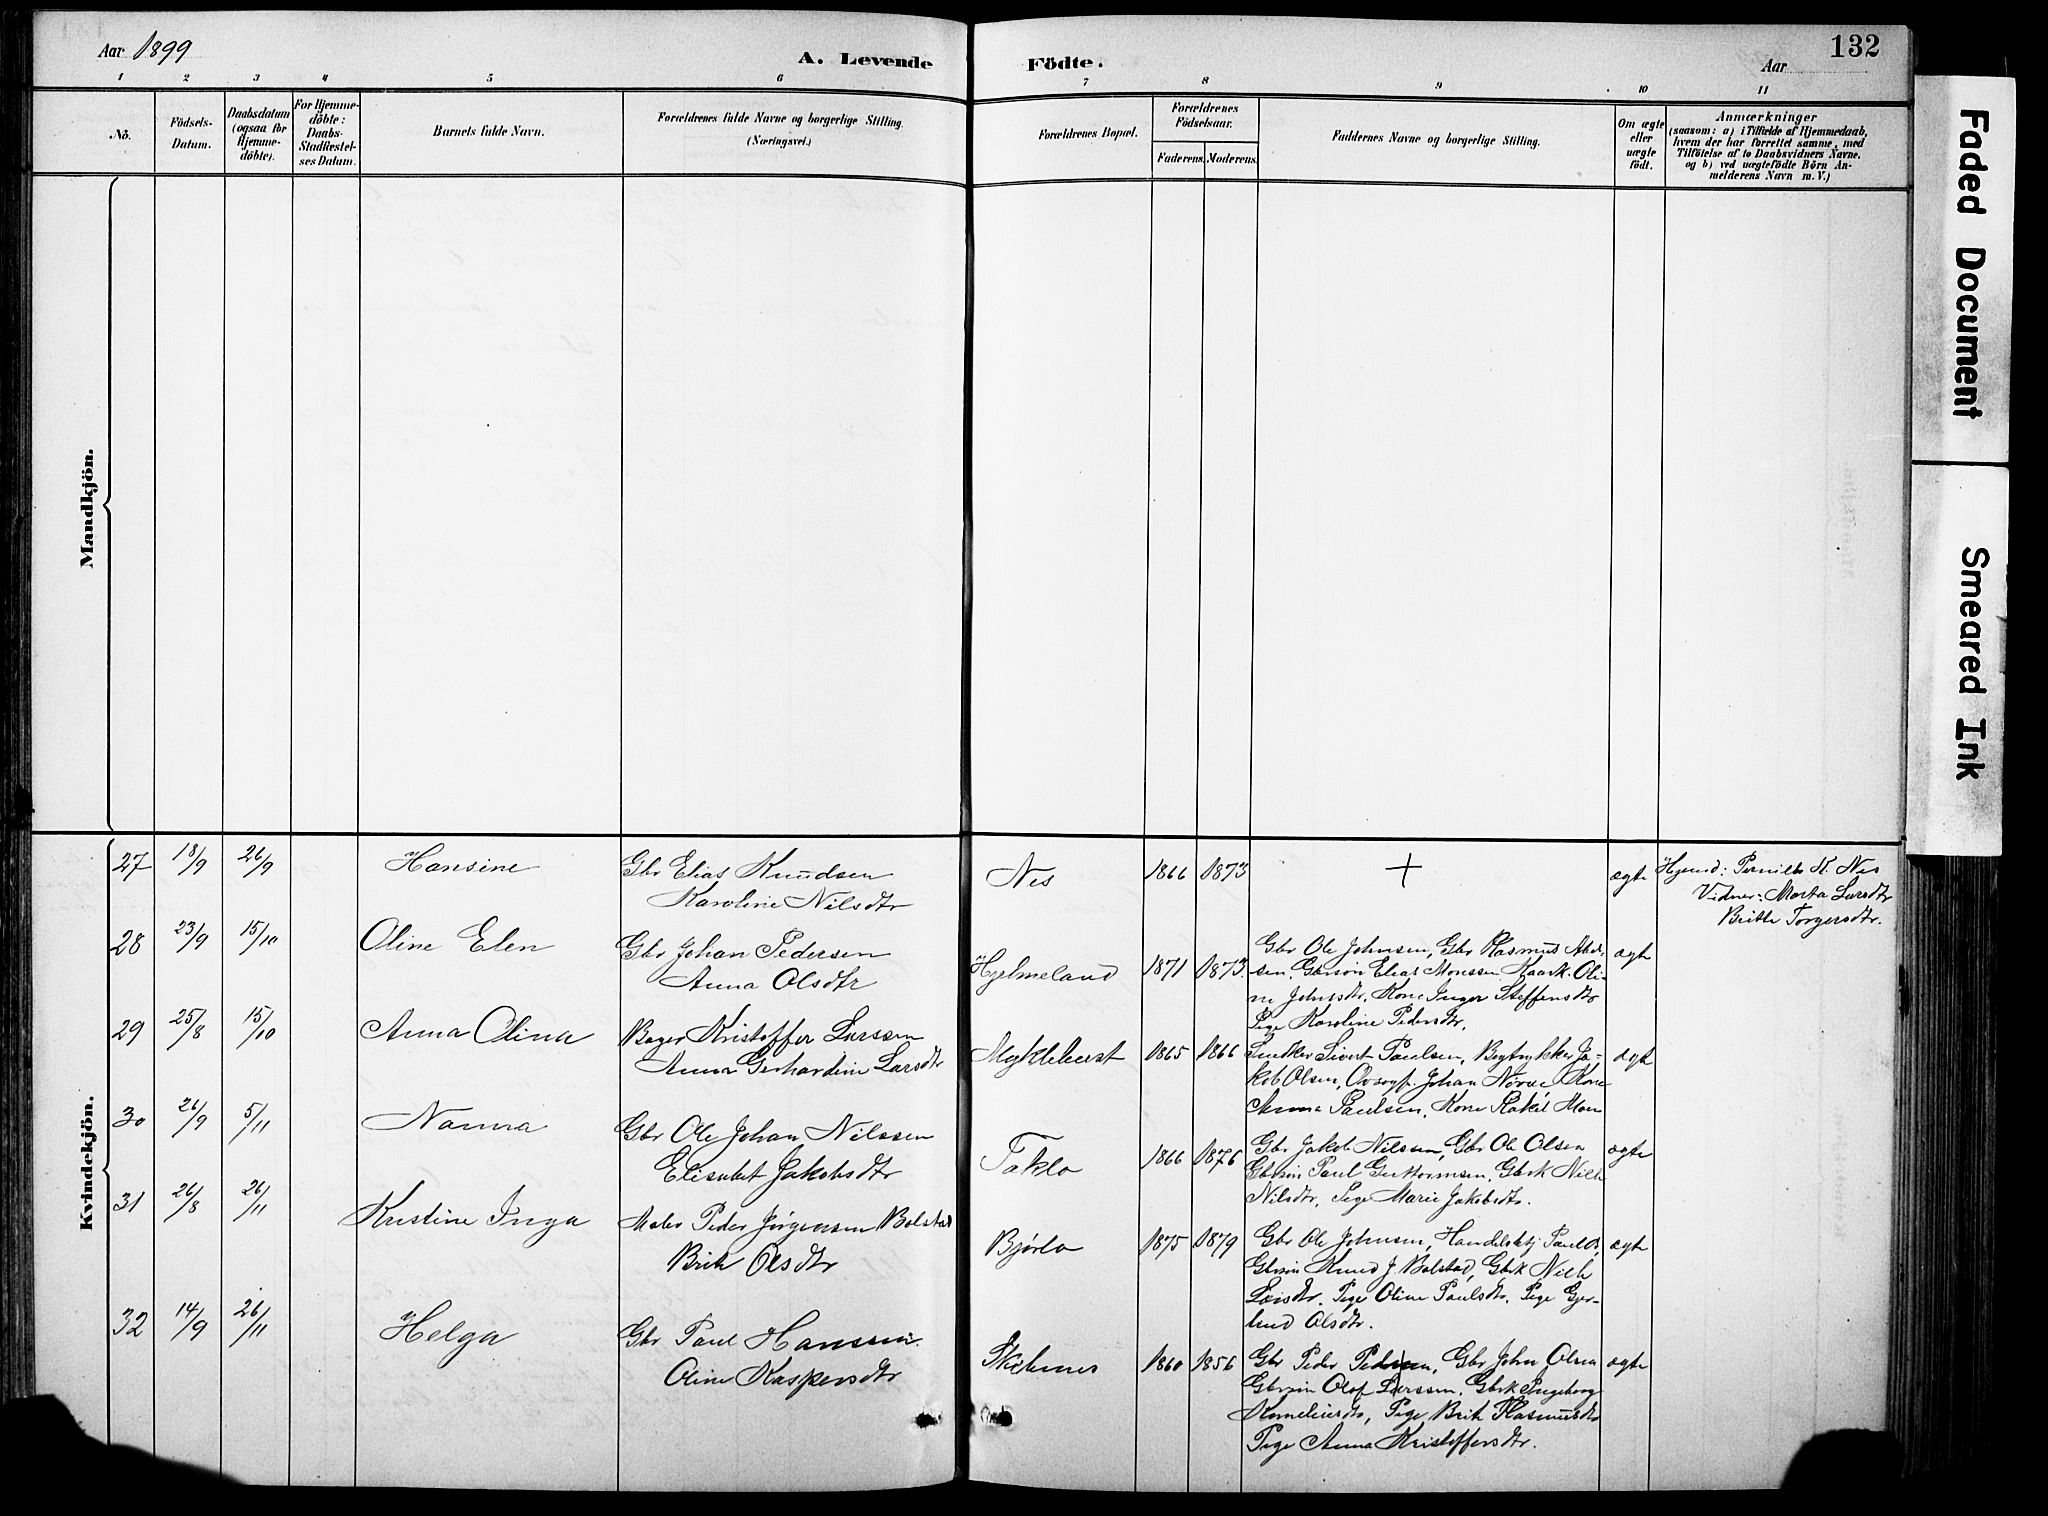 Aar 1899
A. Levende Födte.
Aar
132
1 2 3 4 5 6 7 8 9 10 11
No.
Födsels-
Datum.
Daabsdatum
(ogsaa for
Hjemme-
döbte).
For Hjemme-
döbte:
Daabs-
Stadfæstel-
ses Datum.
Barnets fulde Navn.
Forældrenes fulde Navne og borgerlige Stilling.
(Næringsvei.)
Forældrenes Bopæl.
Forældrenes
Födselsaar.
Faderens. Moderens.
Faddernes Navne og borgerlige Stilling.
Om ægte
eller
uægte
födt.
Anmærkninger
(saasom: a) i Tilfælde af Hjemmedaab,
hvem der har forrettet samme, med
Tilföielse af to Daabsvidners Navne,
og b) ved uægtefödte Börn An-
melderens Navn m. V.)
Mandkjön.
Kvindekjön.
27 18/9 26/9 Hansine Gbr Elias Knudsen
Karoline Nilsdtr
Nes 1866 1873 + ægte
Hjemd: Pernille K. Nes
Vidner: Marta Larsdtr
Britte Torgersdtr.
28 23/9 15/10 Oline Elen Gbr Johan Pedersen
Anna Olsdtr
Hjelmeland 1871 1873 ægte
Gbr Ole Johnsen, Gbr Rasmus
sen, Gbrsön Elias Monssen, Oli-
ne Johnsdtr, Kone Inger Steffensdtr
Pige Karoline Pedersdtr.
29 25/8 15/10 Anna Olina Bager Kristoffer Larssen
Anna Gerhardine Larsdtr
Myklebust 1865 1866 ægte
Snedker Sivert Paulsen, Bogtrykker Ja-
kob Olsen, Johan Kone
Anna Paulsen, Kone Rakel
30 26/9 5/11 Nanna Gbr Ole Johan Nilssen
Elisabet Jakobsdtr
Taklo 1866 1876 ægte
Gbr Jakob Nilsen, Gbr Ole Olsen
Gbrsön Paul Guttormsen, Gbrk
Nilsdtr, Pige Marie Jakobsdtr.
31 26/8 26/11 Kristine Inga Maler Peder Jörgensen Bolstad
Brite Olsdtr
Bjørlo 1875 1879 ægte
Gbr Ole Johnsen, Handelsbtj Paul
Gbrsön Knud J. Bolstad, Gbrk
Larsdtr, Pige Oline Paulsdtr, Pige Gjer-
trud Olsdtr.
32 14/9 26/11 Helga Gbr Paul Hanssen
Oline Kaspersdtr
1860 1856 ægte
Gbr Peder Pedersen, Gbr John Olsen
Gbrsön Olof Larssen, Gbrk Ingeborg
Korneliusdtr, Pige Brite Rasmusdtr
Pige Anna Kristoffersdtr.
Faded Document
Smeared Ink